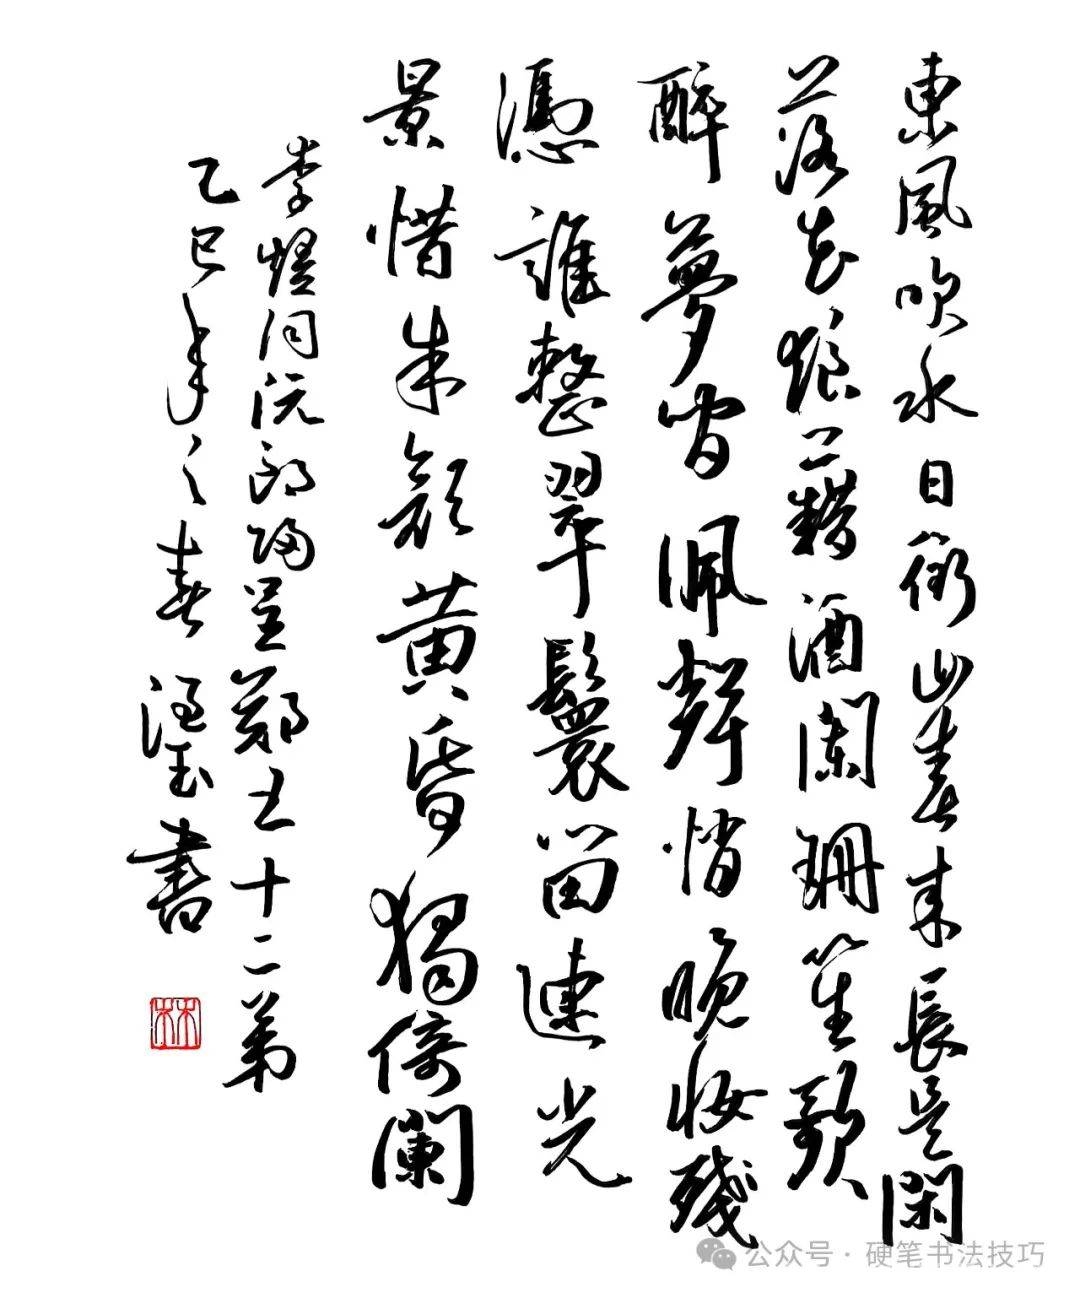 東風吹水日銜山春来長是閑
落花狼藉酒闌珊笙歌
醉夢間佩聲悄晚妆殘
憑誰整翠鬟留連光
景惜朱颜黄昏獨倚闌
李煜词阮郎歸呈鄭王十二弟
乙巳年之春玉書
公众号·硬笔书法技巧